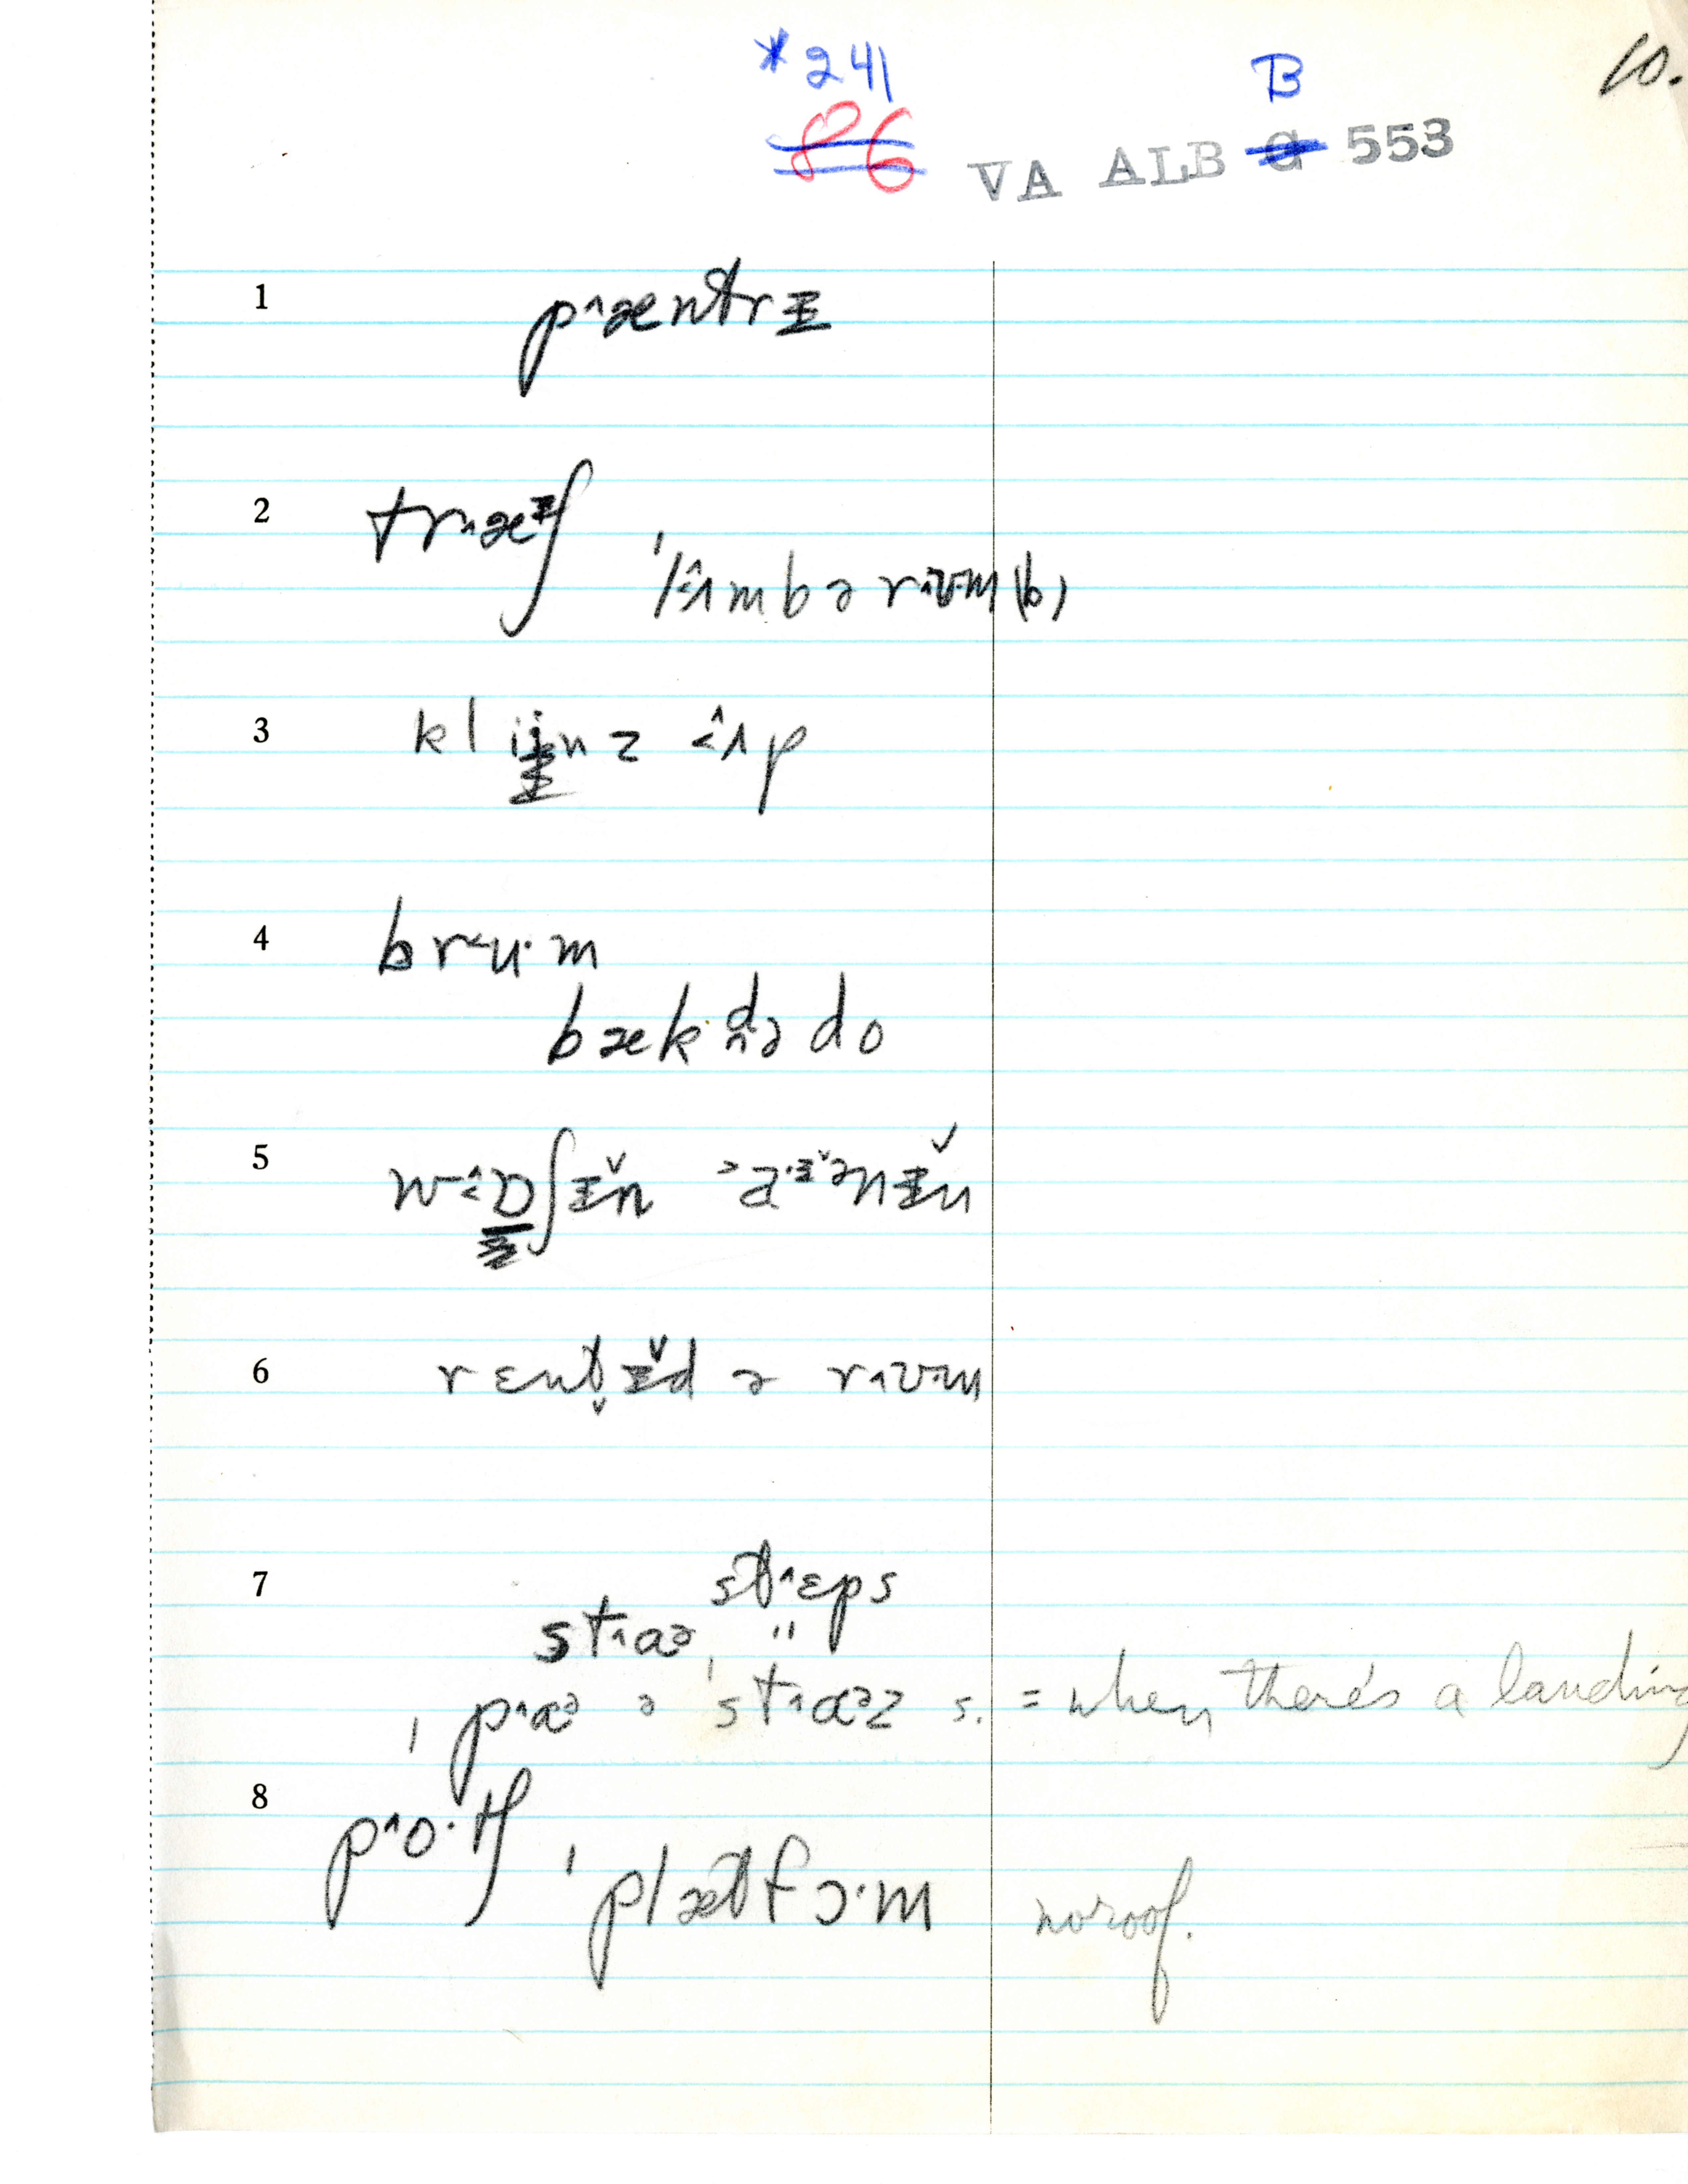 *241 B 10.
86 VA ALB G 553
1 p˄æntrɪ
2 tr˄æᶦʃ
ˈl˂ʌmbə r˄ʊ·m (b)
3 klijnz ˂ʌp
4 br˂u·m
bæk də do
5 ɪ̌n
6 rɛnt̬ɪ̌d ə r˄ʊ·m
7 st˄ɛps
st˄aᵊ "
ˌp˄aᵊ ə ˈst˄aᵊz s. = when there's a landing
8 p˄o·tʃ
ˈplætfɔ·m no roof.